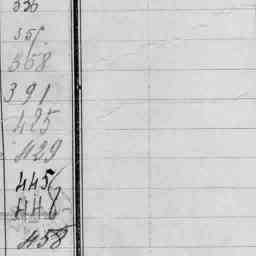 336
356
358
391
425
429
445
448
458